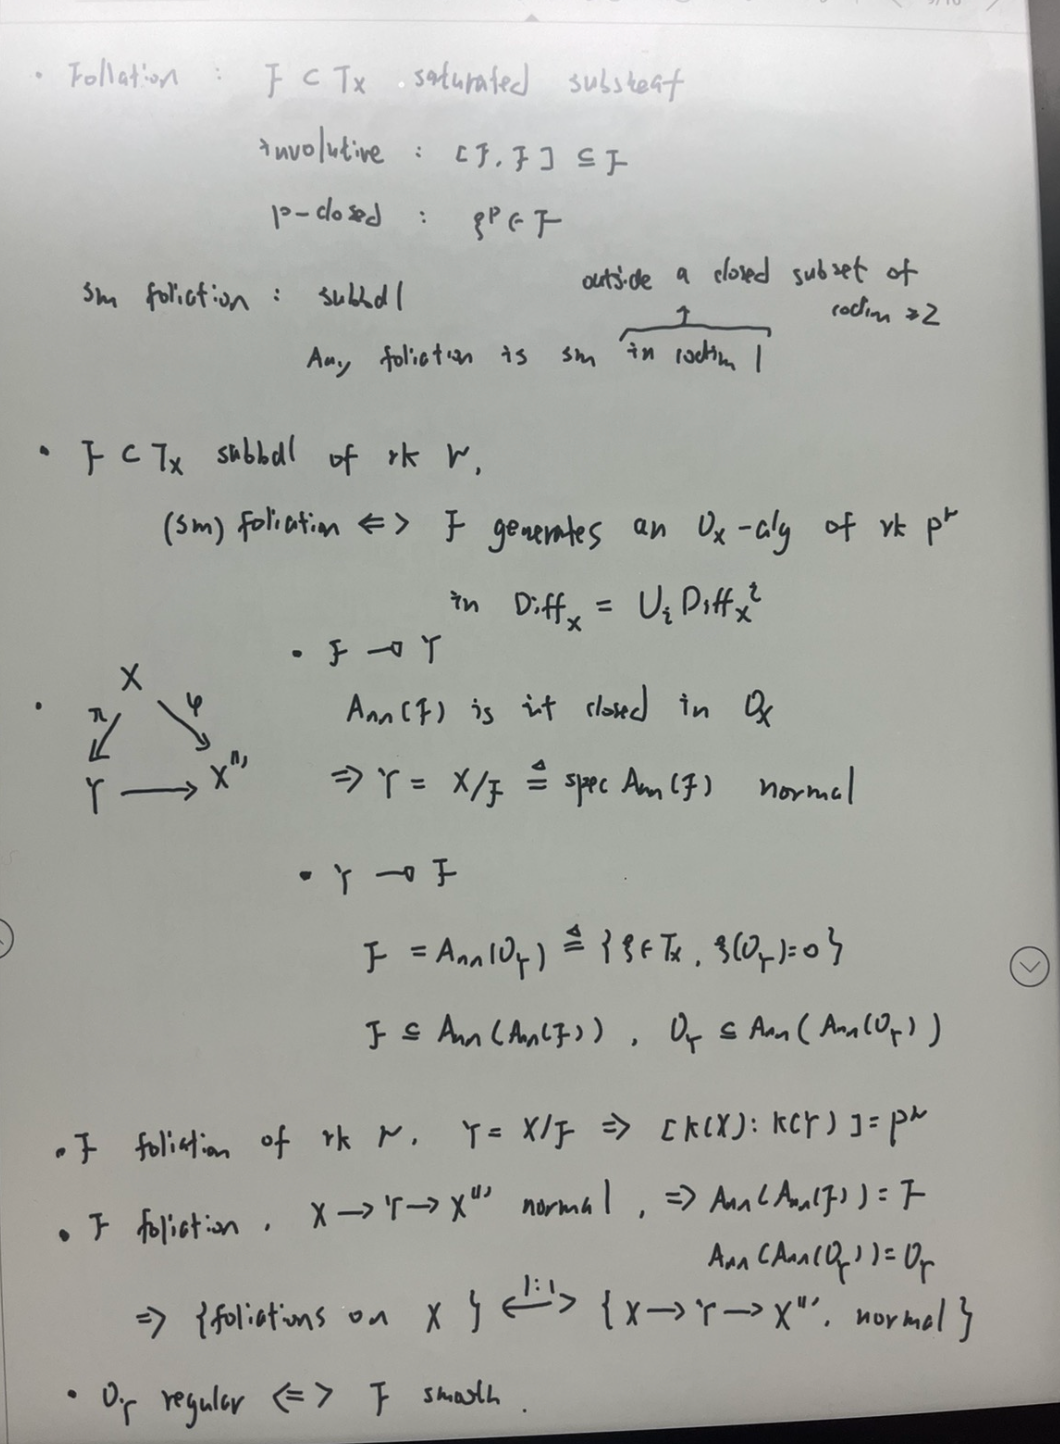 • Foliation : F ⊂ Tx . saturated subsheaf
involutive : [F, F] ⊆ F
p-closed : ξ^p ∈ F
sm foliation : subbdl
outside a closed subset of codim ≥2
↑
Any foliation is sm in codim 1
• F ⊂ Tx subbdl of rk r,
(sm) foliation <=> F generates an Ox-alg of rk p^r
in Diff_x = ∪_i Diff_x^i
• F → Y
• X π φ Y → X^(1)
Ann(F) is int closed in Ox
=> Y = X/F ≜ spec Ann(F) normal
• Y → F
F = Ann(O_Y) ≜ {ξ ∈ Tx, ξ(O_Y)=0}
F ⊆ Ann(Ann(F)), O_Y ⊆ Ann(Ann(O_Y))
• F foliation of rk r. Y = X/F => [K(X): K(Y)] = p^r
• F foliation, X → Y → X^(1) normal, => Ann(Ann(F)) = F
Ann(Ann(O_Y)) = O_Y
=> {foliations on X} <—1:1—> {X → Y → X^(1), normal}
• O_Y regular <=> F smooth.